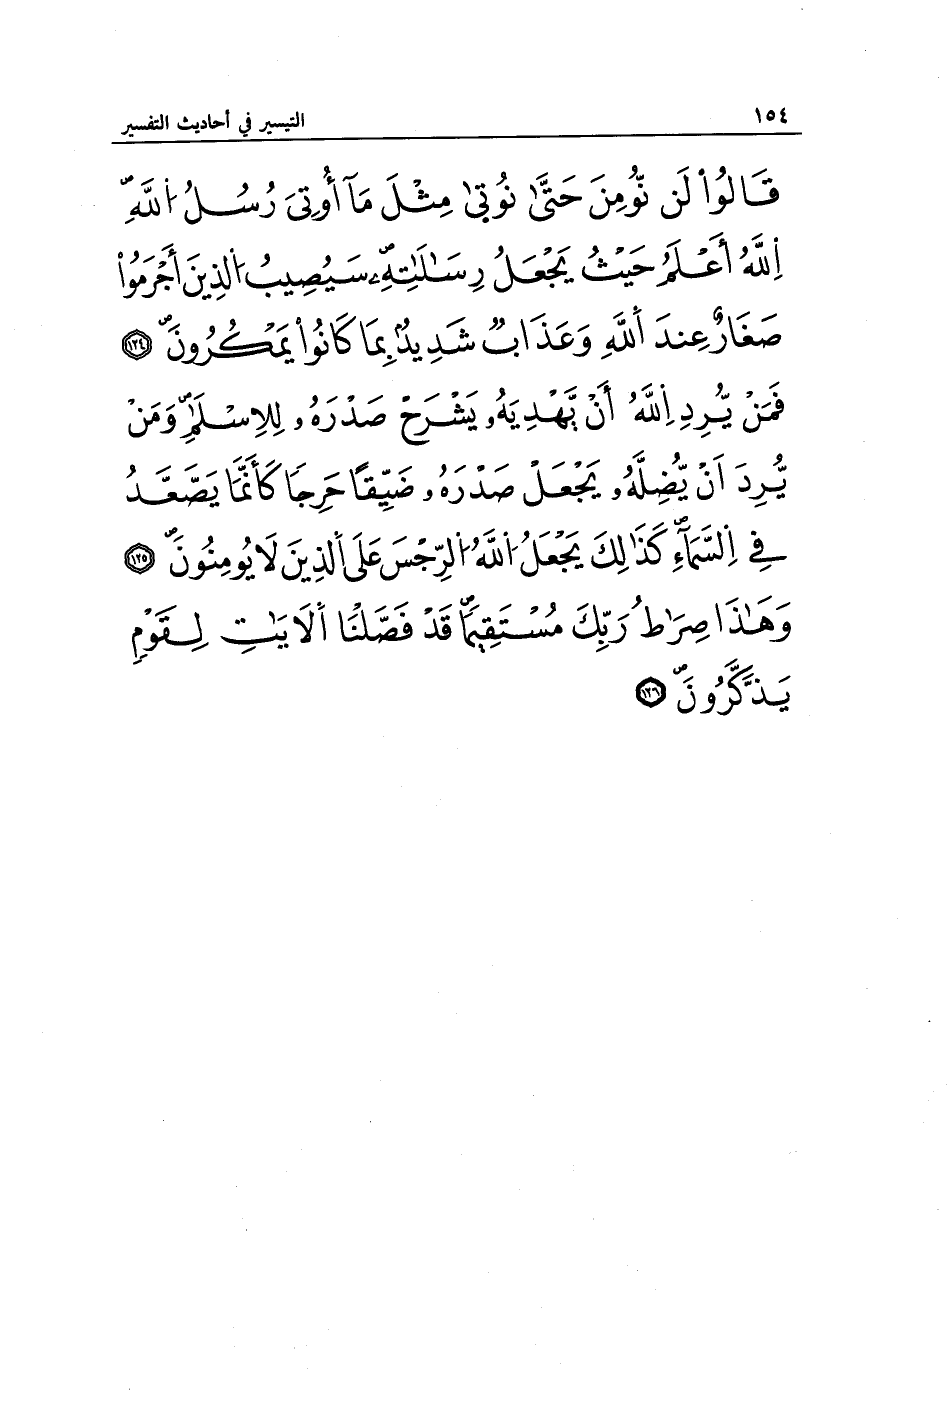 ١٥٤
التيسير في أحاديث التفسير
قَالُواْ لَن نُّومِنَ حَتَّىٰ نُوتِىٰ مِثْلَ مَآ أُوتِىَ رُسُلُ اُللَّهِۖ
اِللَّهُ أَعْلَمُ حَيْثُ يَجْعَلُ رِسَٰلَٰتِهِۦۖ سَيُصِيبُ اُلذِينَ أَجْرَمُواْ
صَغَارٌ عِندَ اَللَّهِ وَعَذَابٌ شَدِيدُۢ بِمَا كَانُواْ يَمْكُرُونَۖ ١٢٤
فَمَنْ يُّرِدِ اِللَّهُ أَنْ يَّهْدِيَهُۥ يَشْرَحْ صَدْرَهُۥ لِلِاسْلَٰمِۖ وَمَنْ
يُّرِدَ اَنْ يُّضِلَّهُۥ يَجْعَلْ صَدْرَهُۥ ضَيِّقاً حَرِجاً كَأَنَّمَا يَصَّعَّدُ
فِے اِلسَّمَآءِۖ كَذَٰلِكَ يَجْعَلُ اُللَّهُ اُلرِّجْسَ عَلَى اَلذِينَ لَا يُومِنُونَۖ ١٢٥
وَهَٰذَا صِرَٰطُ رَبِّكَ مُسْتَقِيماًۖ قَدْ فَصَّلْنَا اَلَايَٰتِ لِقَوْمٍ
يَذَّكَّرُونَۖ ١٢٦